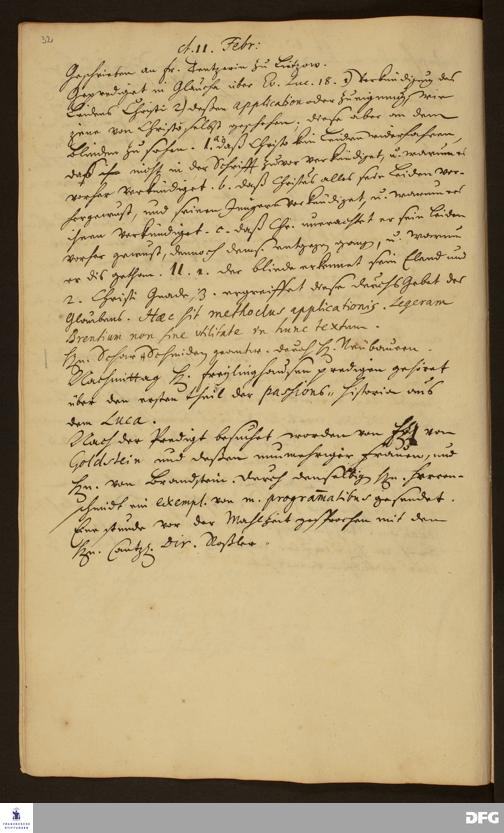 32
d. 11. Febr:
Geschrieben an Fr. Tentzerin zu Lützow.
Geprediget in Glaucha über Ev. Luc. 18. 1) Verkündigung des
Leidens Christi 2) deßen application oder Zueignung, wie
jene von Christo selbst geschehen, diese aber an dem
Blinden zu sehen. I. a. daß Christo kein Leiden widerfahren,
daß nicht in der Schrifft zuvor verkündiget, u. warum es
vorher verkündiget. b. daß Christus alles sein Leiden vor-
hergewust, und seinen Jüngern verkündiget, u. warum er es
ihnen verkündiget. c. daß Chr. unerachtet er sein Leiden
vorher gewust, dennoch dems. entgegen gang., u. warum
er dis gethan. II. 1. der blinde erkennet sein Elend und
2. Christi Gnade, 3. ergreiffet diese durchs Gebet des
Glaubens. Haec sit methodus applicationis. Legeram
Brentium non sine utilitate in hunc textum.
Hn. Schar Schmiden geantw. durch H. Neubauern.
Nachmittag H. Freylinghausen predigen gehöret
über den ersten Theil der passions-historia aus
dem Luca.
Nach der Predigt besuchet worden von von
Goldstein und deßen nunmehriger Frauen, und
Hn. von Brandstein. durch denselbigen Hn. Herren-
schmidt ein exempl. von m. programmatibus gesendet.
Eine stunde vor der Mahlzeit gesprochen mit dem
Hn. Cantzl. Dir. Roßler.
FRANCKESCHE STIFTUNGEN
DFG